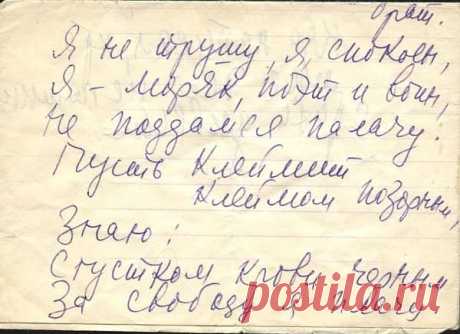 брат.
Я не трушу, я спокоен,
Я - моряк, поэт и воин,
Не поддамся палачу.
Пусть клеймит
клеймом позорным,
Знаю:
Сгустком крови черным
За свободу я плачу
postila.ru